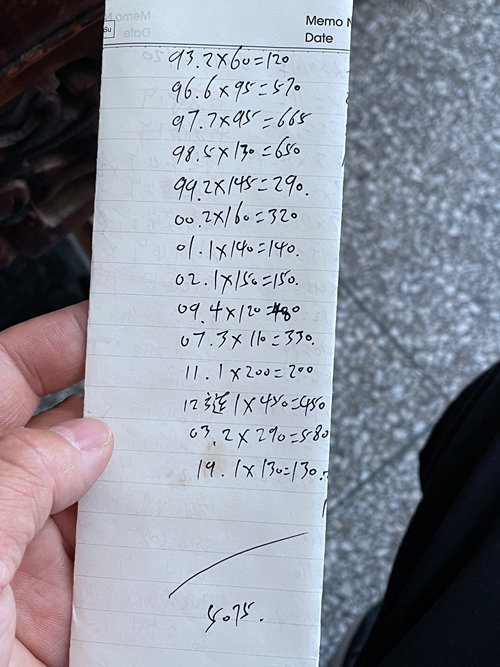 Memo N
Date
93.2×60=120
96.6×95=570
97.7×95=665
98.5×130=650
99.2×145=290.
00.2×160=320
01.1×140=140.
02.1×150=150.
09.4×120=480
07.3×110=330.
11.1×200=200
12 1×450=450
03.2×290=580
19.1×130=130.
5075.